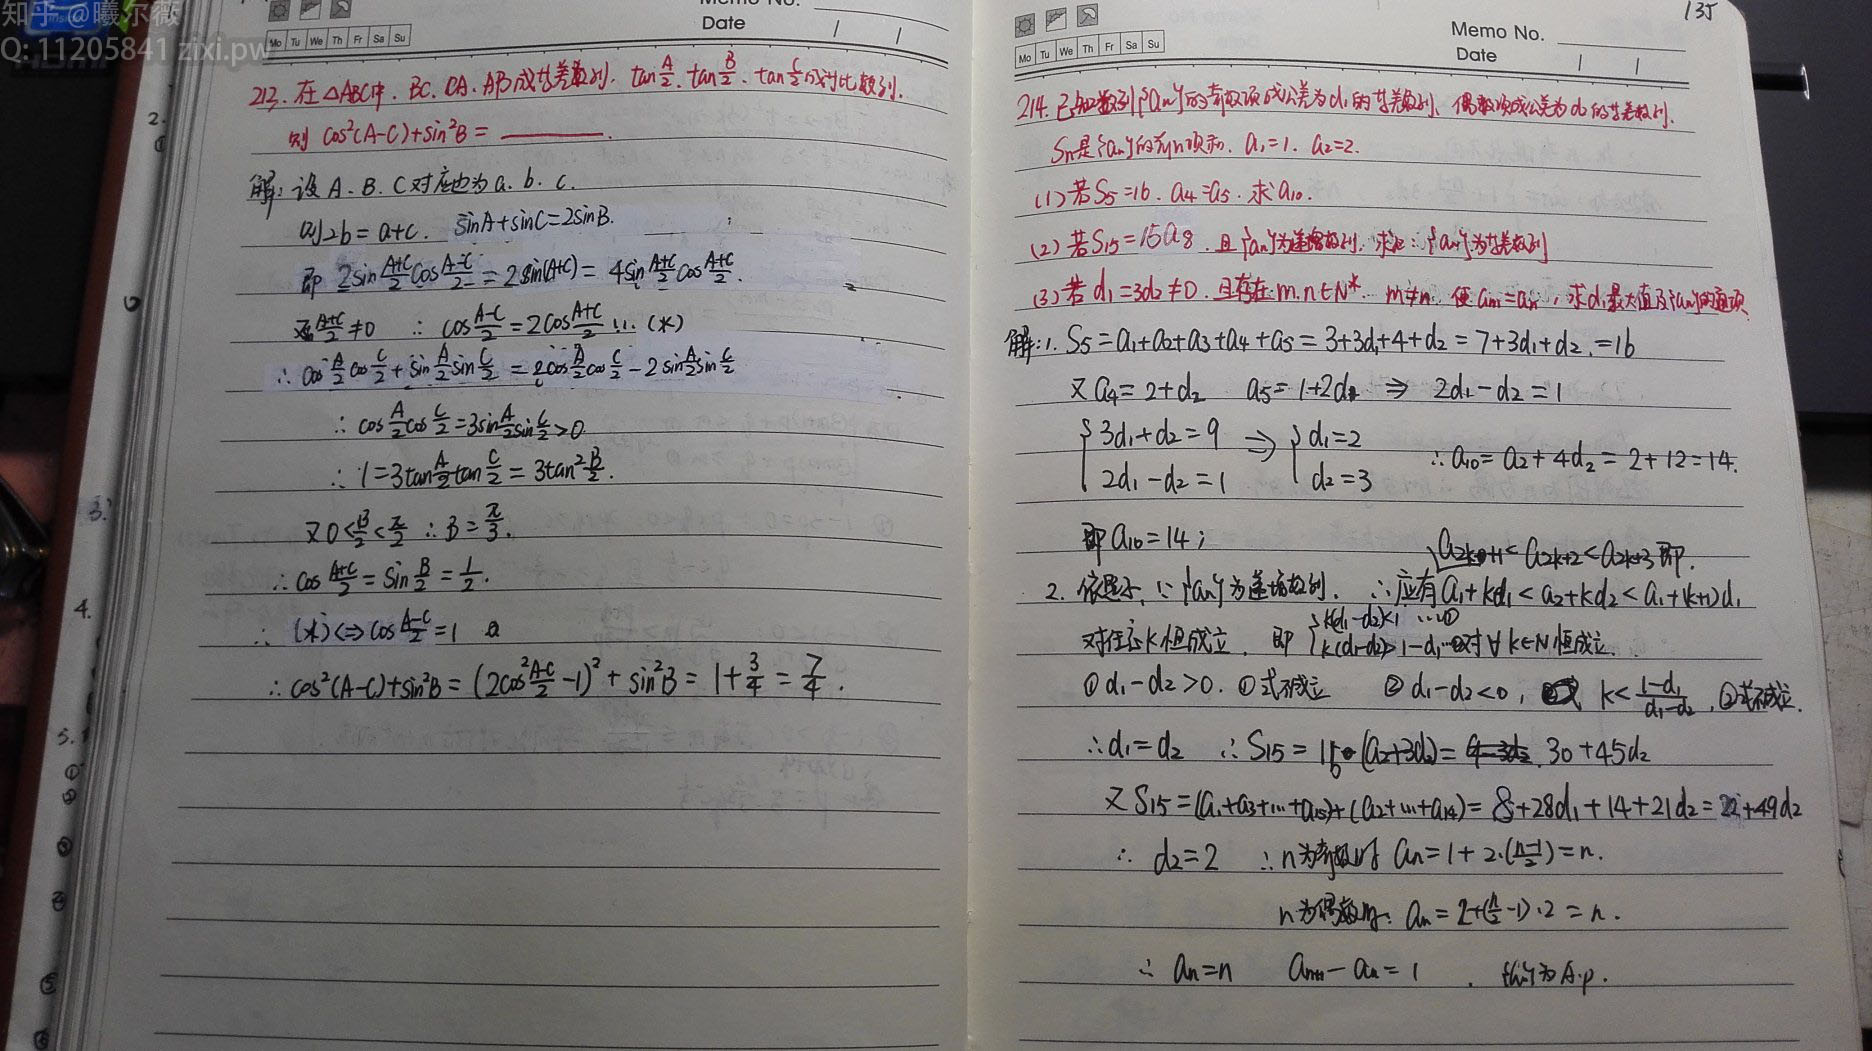 知乎 @曦尔薇
Q: 11205841 zixi.pw
Memo No.
Date / /
Mo Tu We Th Fr Sa Su
213. 在△ABC中. BC. CA. AB成等差数列. tan A/2. tan B/2. tan C/2 成等比数列.
则 cos²(A-C)+sin²B = ______.
解: 设 A. B. C 对应边为 a. b. c.
则 2b = a+c. sinA+sinC=2sinB.
即 2sin (A+C)/2 cos (A-C)/2 = 2sin(A+C) = 4sin (A+C)/2 cos (A+C)/2.
又 (A+C)/2 ≠0 ∴ cos (A-C)/2 = 2cos (A+C)/2 ... (*)
∴ cos A/2 cos C/2 + sin A/2 sin C/2 = 2cos A/2 cos C/2 - 2 sin A/2 sin C/2
∴ cos A/2 cos C/2 = 3sin A/2 sin C/2 > 0
∴ 1=3tan A/2 tan C/2 = 3tan² B/2.
又 0< B/2 < π/2 ∴ B = π/3.
∴ cos (A+C)/2 = sin B/2 = 1/2.
∴ (*) <=> cos (A-C)/2 = 1
∴ cos²(A-C)+sin²B = (2cos² (A-C)/2 -1)² + sin²B = 1+ 3/4 = 7/4.
2.
3.
4.
5.
135
Memo No.
Date / /
Mo Tu We Th Fr Sa Su
214. 已知数列{an}的奇数项成公差为d1的等差数列. 偶数项成公差为d2的等差数列.
Sn是{an}的前n项和. a1=1. a2=2.
(1) 若S5=16. a4=a5. 求a10.
(2) 若S15=15a8. 且{an}为递增数列. 求证: {an}为等差数列
(3) 若 d1=3d2≠0. 且存在m.n∈N*. m≠n. 使am=an, 求d1最大值及{an}的通项
解: 1. S5=a1+a2+a3+a4+a5=3+3d1+4+d2=7+3d1+d2.=16
又 a4=2+d2 a5=1+2d1 ⇒ 2d1-d2=1
{3d1+d2=9 ⇒ {d1=2
2d1-d2=1 d2=3 ∴a10=a2+4d2=2+12=14.
即a10=14;
a2k+1<a2k+2<a2k+3 即.
2. 依题示, ∵{an}为递增数列. ∴应有a1+kd1<a2+kd2<a1+(k+1)d1
对任意k恒成立. 即 {k(d1-d2)<1 ...①
k(d1-d2)>1-d1...②对∀k∈N恒成立.
① d1-d2>0. ①式不成立 ② d1-d2<0, k< (1-d1)/(d1-d2), ②式不成立.
∴d1=d2 ∴S15=15(a2+3d2)= 30+45d2
又S15=(a1+a3+...+a15)+(a2+...+a14)=8+28d1+14+21d2=22+49d2
∴ d2=2 ∴n为奇数时 an=1+2·((n-1)/2)=n.
n为偶数时: an=2+(n/2-1)·2=n.
∴ an=n an+1-an=1. {an}为A.P.